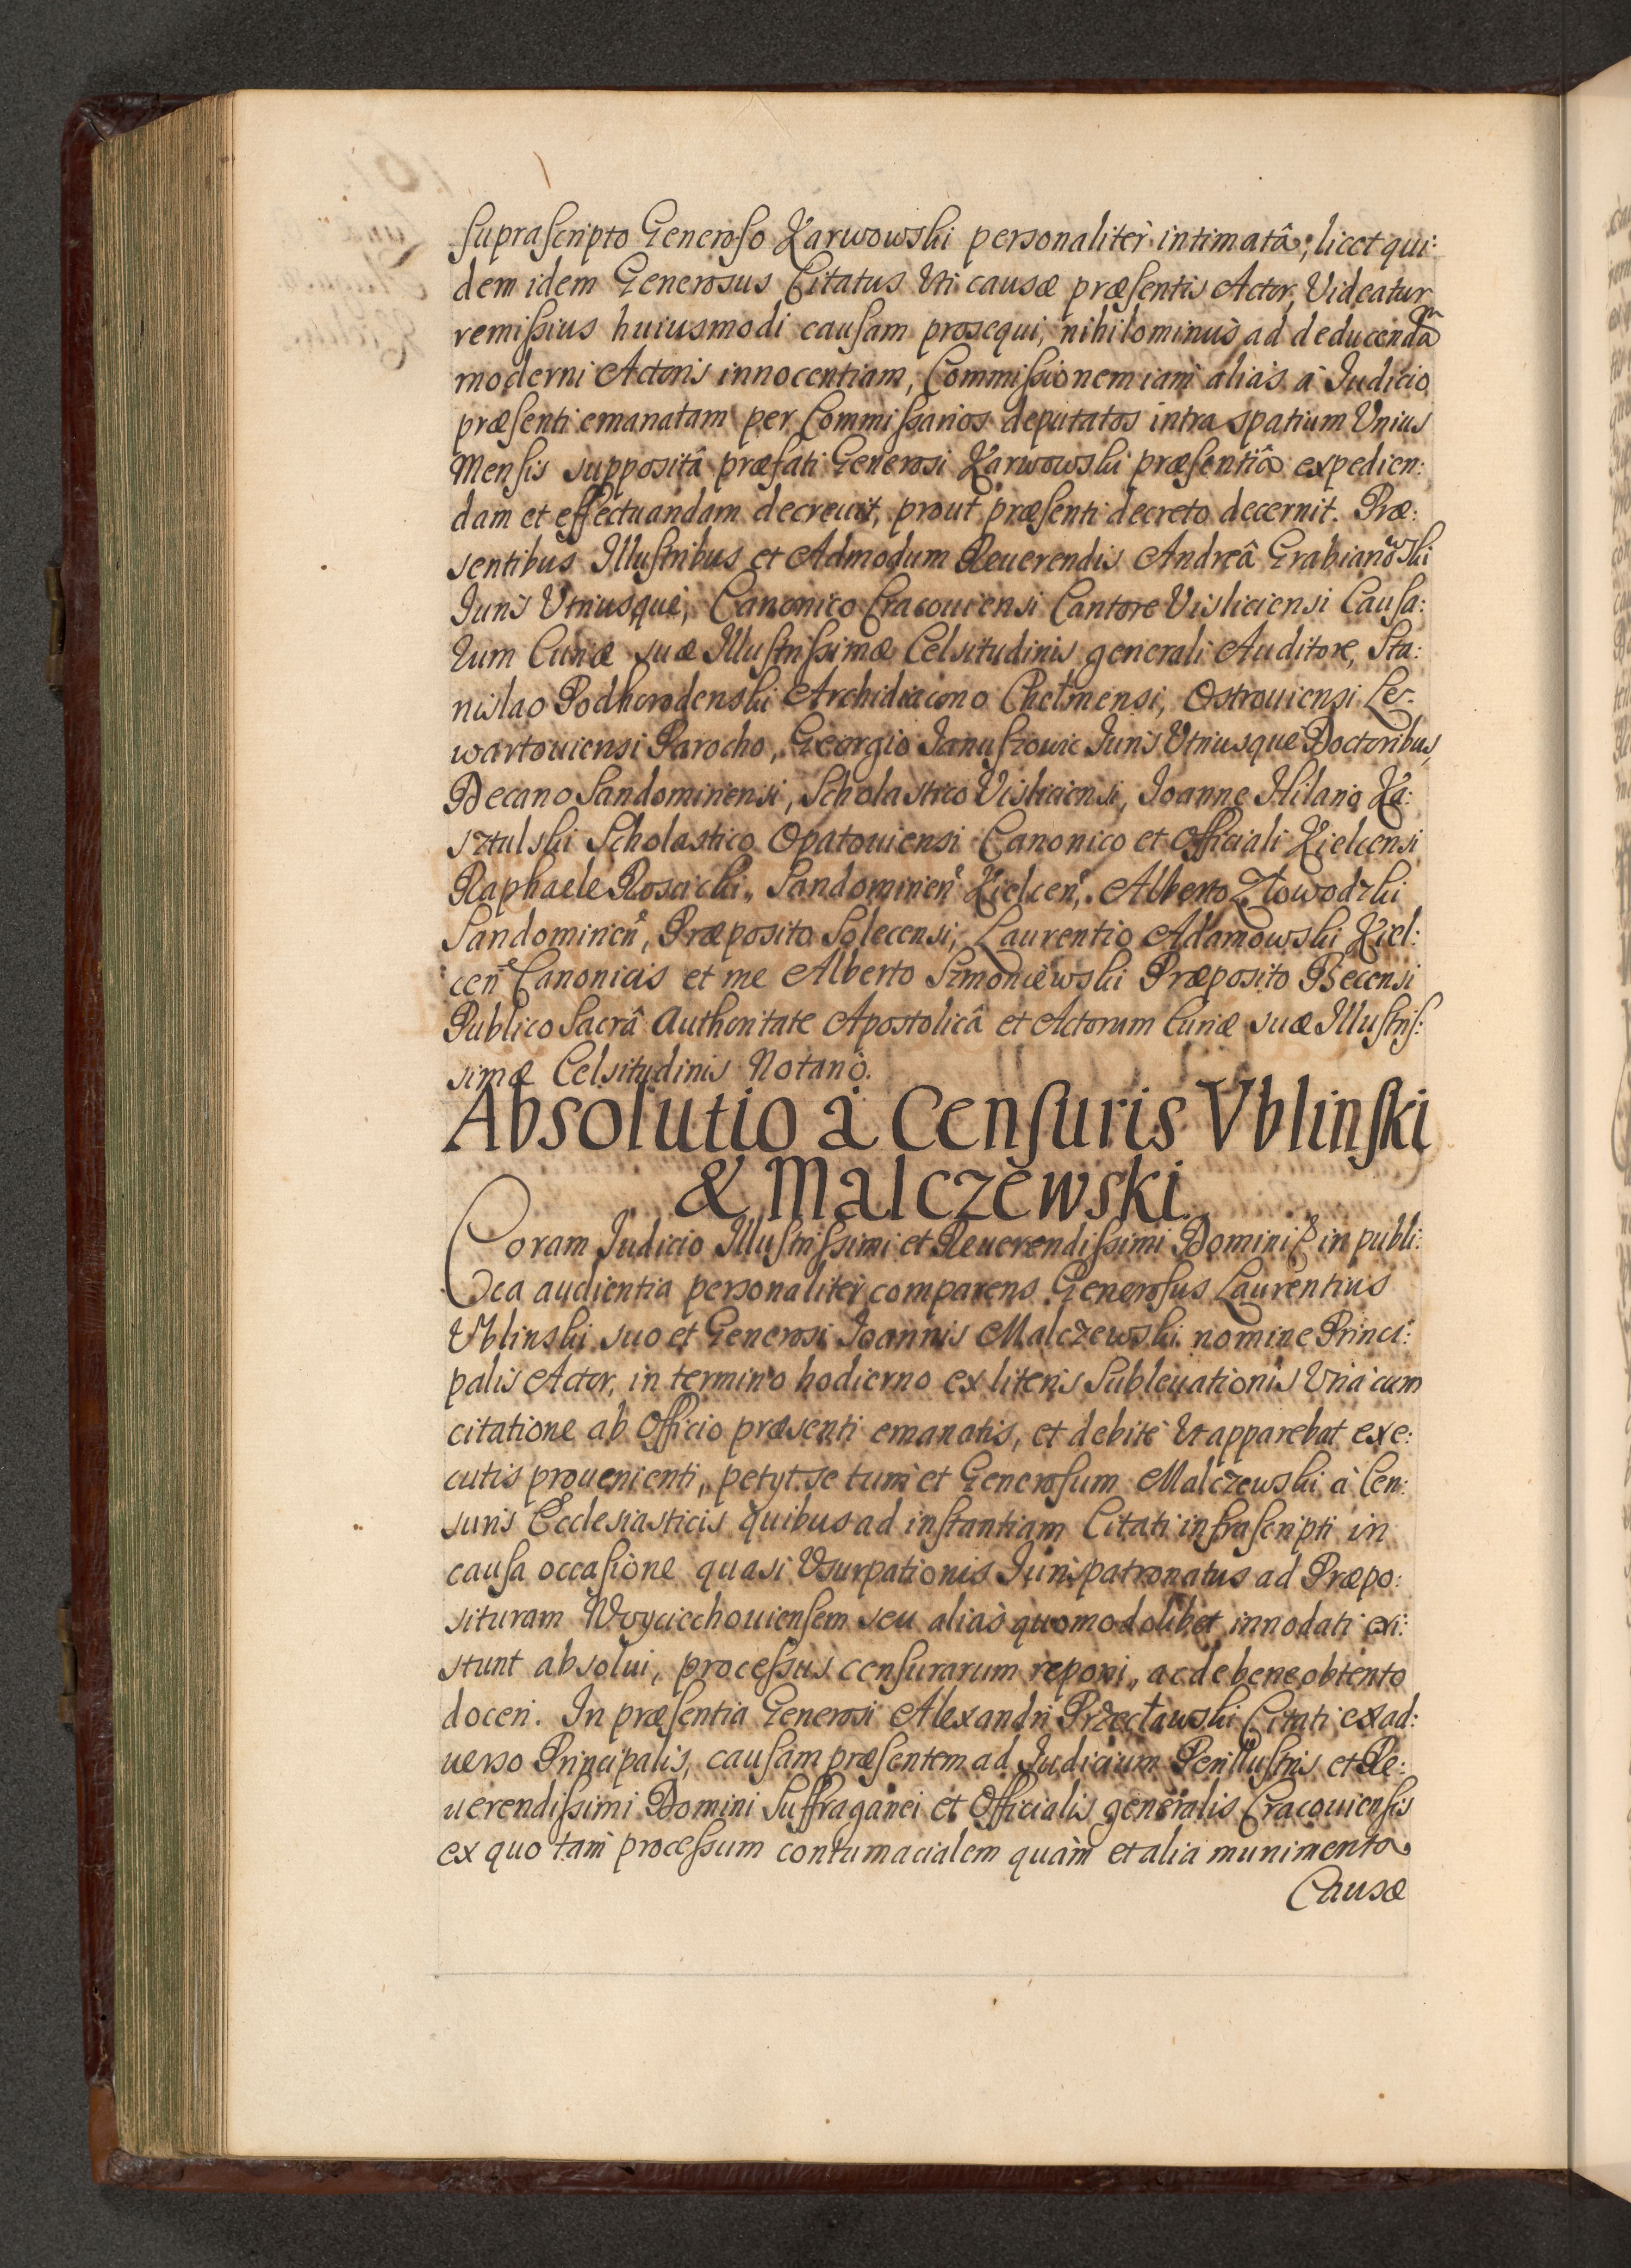 supraſcripto Generoſo Karwowski personaliter intimatâ, licet qui:
dem idem Generosus Citatus Uti causæ præſentis Actor, Videatur
remiſsius huiusmodi cauſam prosequi, nihilominùs ad deducendam
moderni Actoris innocentiam, Commiſsionem iam aliàs à Iudicio
præſenti emanatam per Commiſsarios deputatos intra spatium Vnius
Menſis suppositâ præfati Generosi Karwowski præſentiâ expedien:
dam et effectuandam decreuit, prout præſenti decreto decernit. Præ:
sentibus Illuſtribus et Admodum Reuerendis Andreâ Grabianowski
Iuris Vtriusque, Canonico Cracouiensi Cantore Visliciensi Cauſa:
rum Curiæ suæ Illuſtriſsimæ Celsitudinis generali Auditore, Sta:
nislao Podhorodenski Archidiacono Chełmensi, Ostrouiensi Le:
wartouiensi Parocho, Georgio Ianuſzowic Iuris Vtriusque Doctoribus,
Decano Sandomiriensi, Scholastico Visliciensi, Ioanne Hilario Ka:
sztulski Scholastico Opatouiensi Canonico et Officiali Kielcensi
Raphaele Roscicki, Sandomirien Kielcen, Alberto Złowodzki
Sandomirien, Præposito Solecensi, Laurentio Adamowski Kiel:
cen Canonicis et me Alberto Szmoniewski Præposito Becensi
Publico Sacrâ Authoritate Apostolicâ et Actorum Curiæ suæ Illuſtriſ:
simæ Celsitudinis Notario.
Absolutio à Cenſuris Vblinſki
& Malczewski.
Coram Iudicio Illuſtriſsimi et Reuerendiſsimi Domini in publi:
ca audientia personaliter comparens Generoſus Laurentius
Vblinski suo et Generosi Ioannis Malczewski nomine Princi:
palis Actor, in termino hodierno ex literis Subleuationis Vnà cum
citatione ab Officio præsenti emanatis, et debitè Vt apparebat exe:
cutis prouenienti, petyt se tum et Generoſum Malczewski à Cen:
suris Ecclesiasticis quibus ad inſtantiam Citati infraſcripti in
cauſa occaſione quasi Vsurpationis Iurispatronatus ad Præpo:
situram Woyciechouienſem seu aliàs quomodolibet innodati exi:
stunt absolui, proceſsus cenſurarum reponi, ac de bene obtento
doceri. In præſentia Generosi Alexandri Przecławski Citati ex ad:
uerso Principalis, cauſam præſentem ad Iudicium Perilluſtris et Re:
uerendiſsimi Domini Suffraganei et Officialis generalis Cracouienſis
ex quo tam proceſsum contumacialem quàm et alia munimenta
Causæ